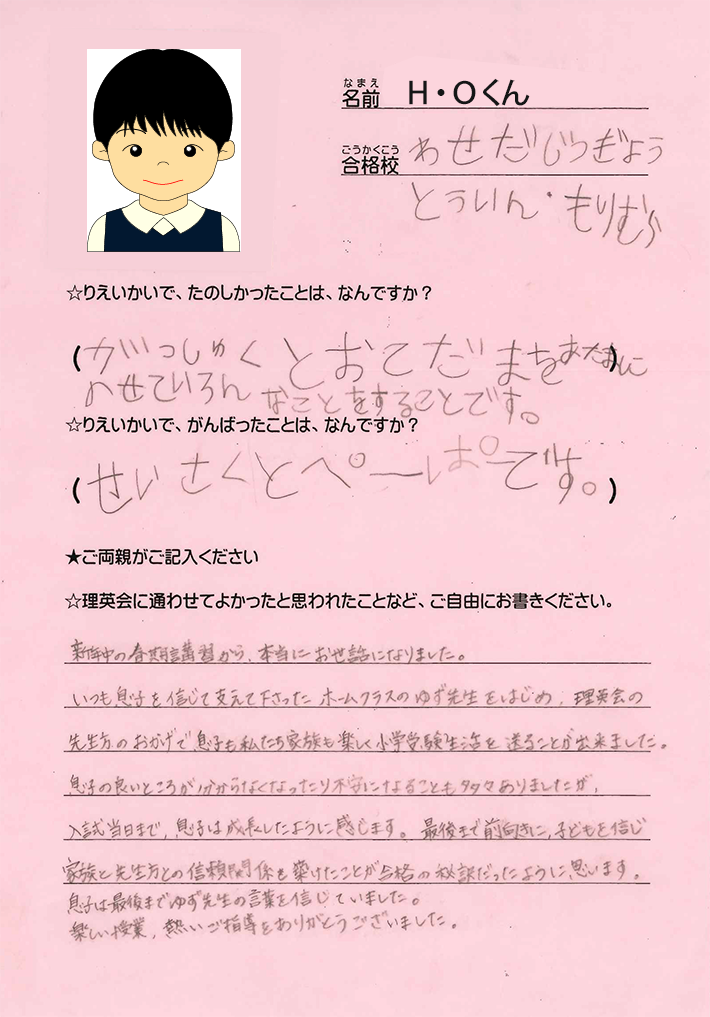 なまえ
名前 H・Oくん
ごうかくこう
合格校 わせだじつぎょう
とういん・もりむら
☆りえいかいで、たのしかったことは、なんですか？
(がっしゅくとおてだまをあたまに)
のせていろんなことをすることです。
☆りえいかいで、がんばったことは、なんですか？
(せいさくとぺーぱーです。)
★ご両親がご記入ください
☆理英会に通わせてよかったと思われたことなど、ご自由にお書きください。
新年中の春期講習から、本当にお世話になりました。
いつも息子を信じて支えて下さったホームクラスのゆず先生をはじめ、理英会の
先生方のおかげで息子も私たち家族も楽しく小学受験生活を送ることが出来ました。
息子の良いところが分からなくなったり不安になることも多々ありましたが、
入試当日まで、息子は成長したように感じます。最後まで前向きに、子どもを信じ
家族と先生方との信頼関係を築けたことが合格の秘訣だったように思います。
息子は最後までゆず先生の言葉を信じていました。
楽しい授業、熱いご指導をありがとうございました。